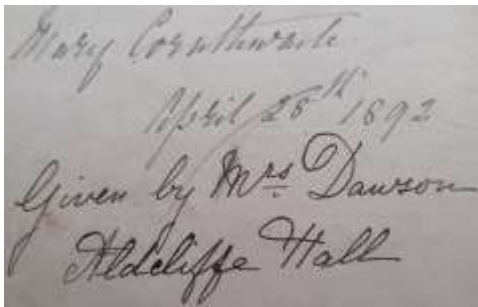 Mary Cornthwaite
April 28th 1892
Given by Mrs Dawson
Aldcliffe Hall